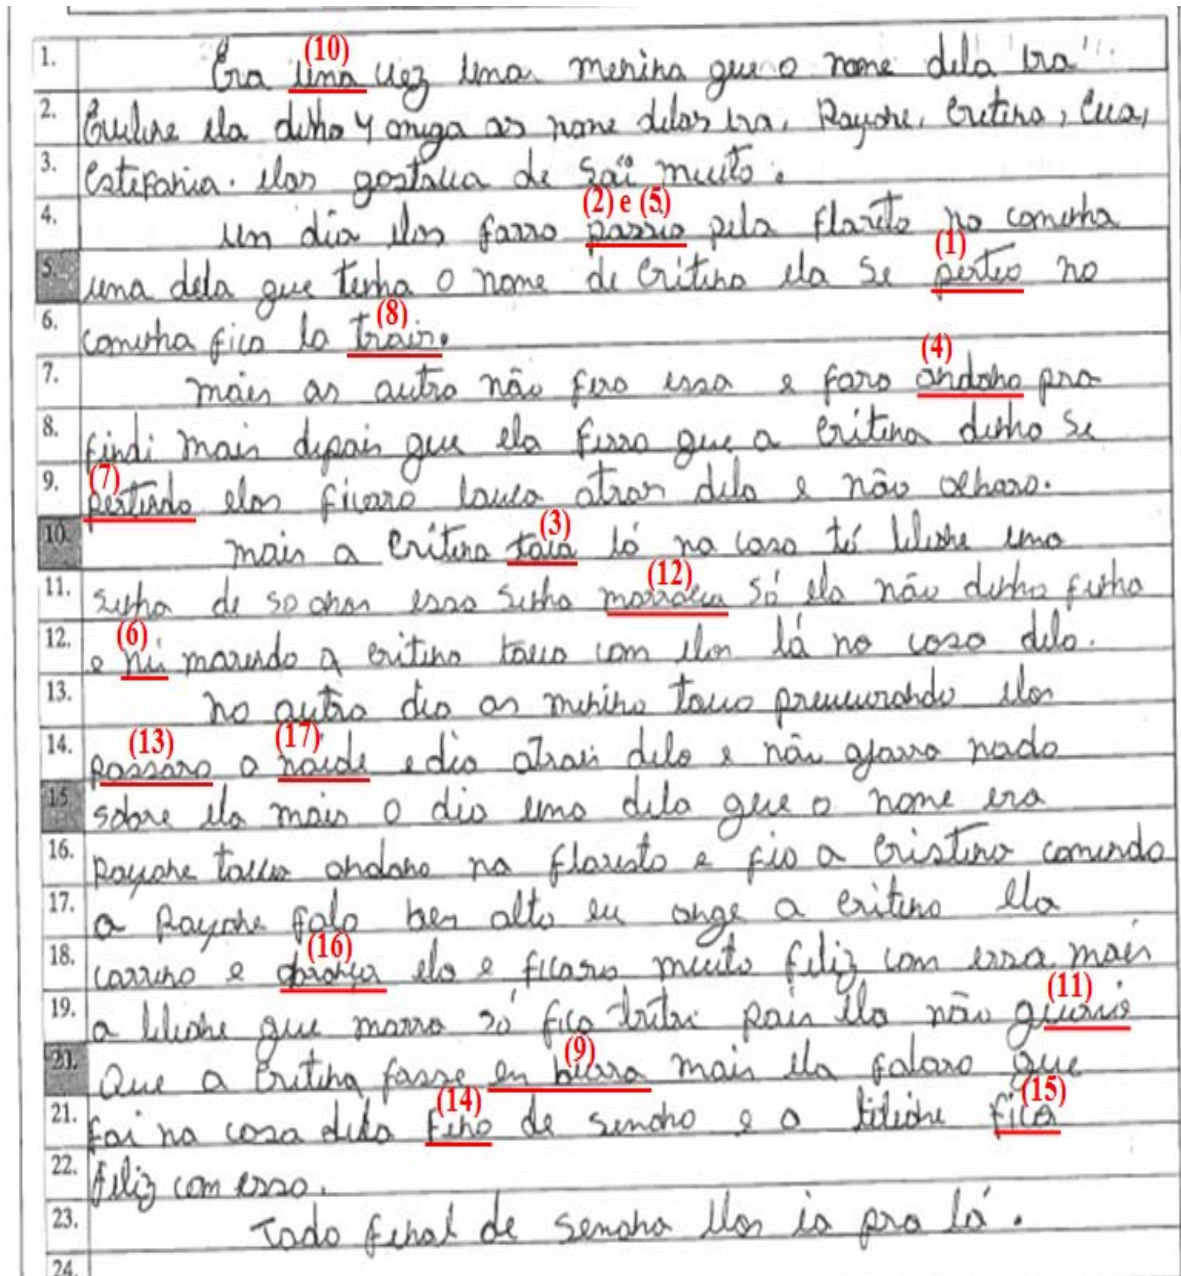 (10)
1. Era uma vez uma menina que o nome dela era
2. ela dinho 4 amiga as nome delas era, Rayane, Critina, Eua,
3. Estefania. elas gostaua de sai muito.
(2) e (5)
4. um dia elas farro passio pela flareta no caminha
(1)
5. uma dela que tenha o nome de Critina ela se perteo no
(8)
6. caminha fico la trais.
(4)
7. mais as autra não firo essa e faro andano pra
8. findi mais depais que ela firro que a Critina dinho se
(7)
9. pertindo elas ficarro lauca atras dela e não olharo.
(3)
10. mais a Critina taia lá na casa
(12)
11. de so anos essa sinha morraua só ela não dinha finha
(6)
12. e ni marendo a critina taua com elas lá na casa dela.
13. no autro dia as minina taua preucurando elas
(13) (17)
14. passaro a naide e dia atrais dela e não ajaro nada
15. sobre ela mais o dia uma dela que o nome era
16. Rayane taua andano na flaresta e fio a Cristina comendo
17. a Rayane falo ben alto eu ange a critina ela
(16)
18. carreno e abraça ela e ficaro muito feliz com essa mais
(11)
19. a que marra só fico tritri pais ela não queria
(9)
20. Que a Critina fasse en biora mais ela falaro que
(14) (15)
21. fai na casa dela feno de semana e a fico
22. feliz com esso.
23. Todo fenal de semana elas ia pra lá.
24.